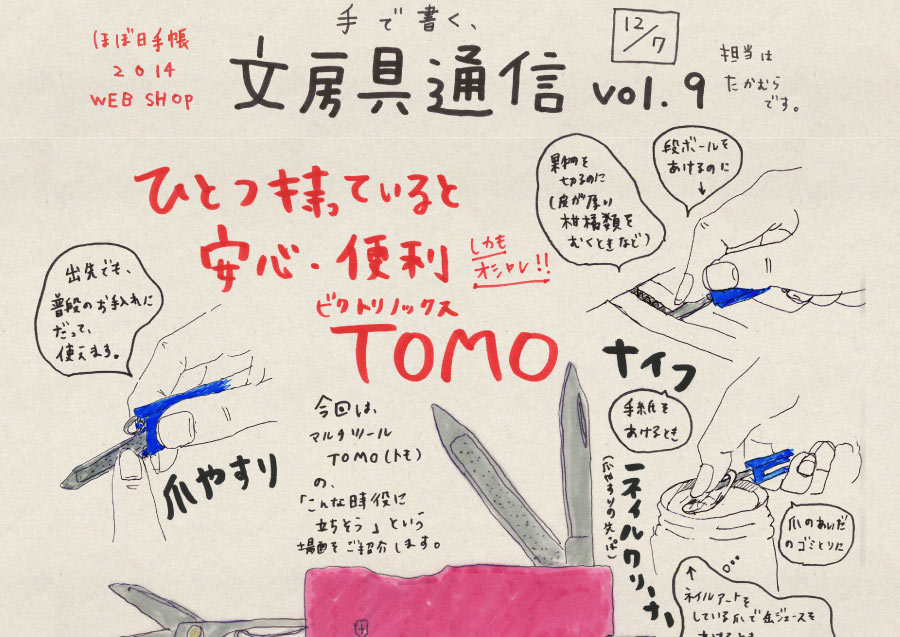 ほぼ日手帳
2014
WEB SHOP
手で書く、
文房具通信 vol.9
12/7
担当は
たかむら
です。
ひとつ持っていると
安心・便利
しかも
オシャレ!!
ビクトリノックス
TOMO
出先でも、
普段のお手入れに
だって、
使えます。
爪やすり
今回は、
マルチツール
TOMO(トモ)
の、
「こんな時役に
立ちそう」という
場面をご紹介します。
果物を
切るのに
(皮が厚い
柑橘類を
むくときなど)
段ボールを
あけるのに
ナイフ
手紙を
あけるとき
ネイルクリーナー
(爪やすりの先っぽ)
爪のあいだ
のゴミとりに
ネイルアートを
している爪で缶ジュースを
あけるとき